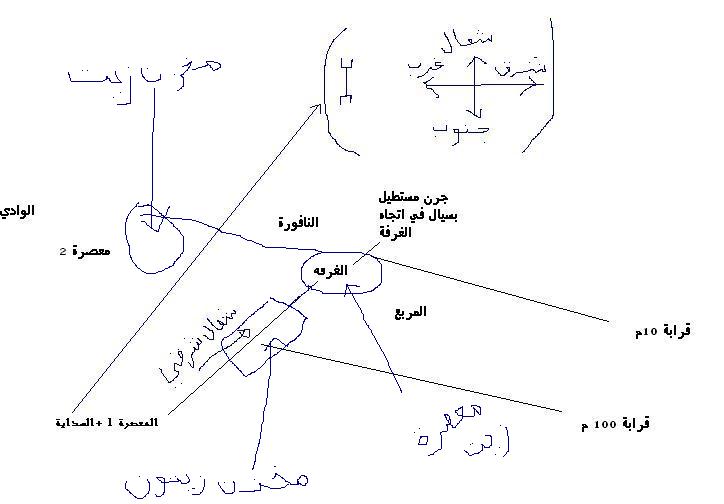 شمال
غرب
شرق
جنوب
مخزن زيت
جرن مستطيل
بسيال في اتجاه
الغرفة
الوادي
النافورة
معصرة 2
الغرفه
المربع
شمال شرقي
قرابة 10م
المعصرة 1 +البداية
قرابة 100 م
معصرة
زيت
مخزن زيتون